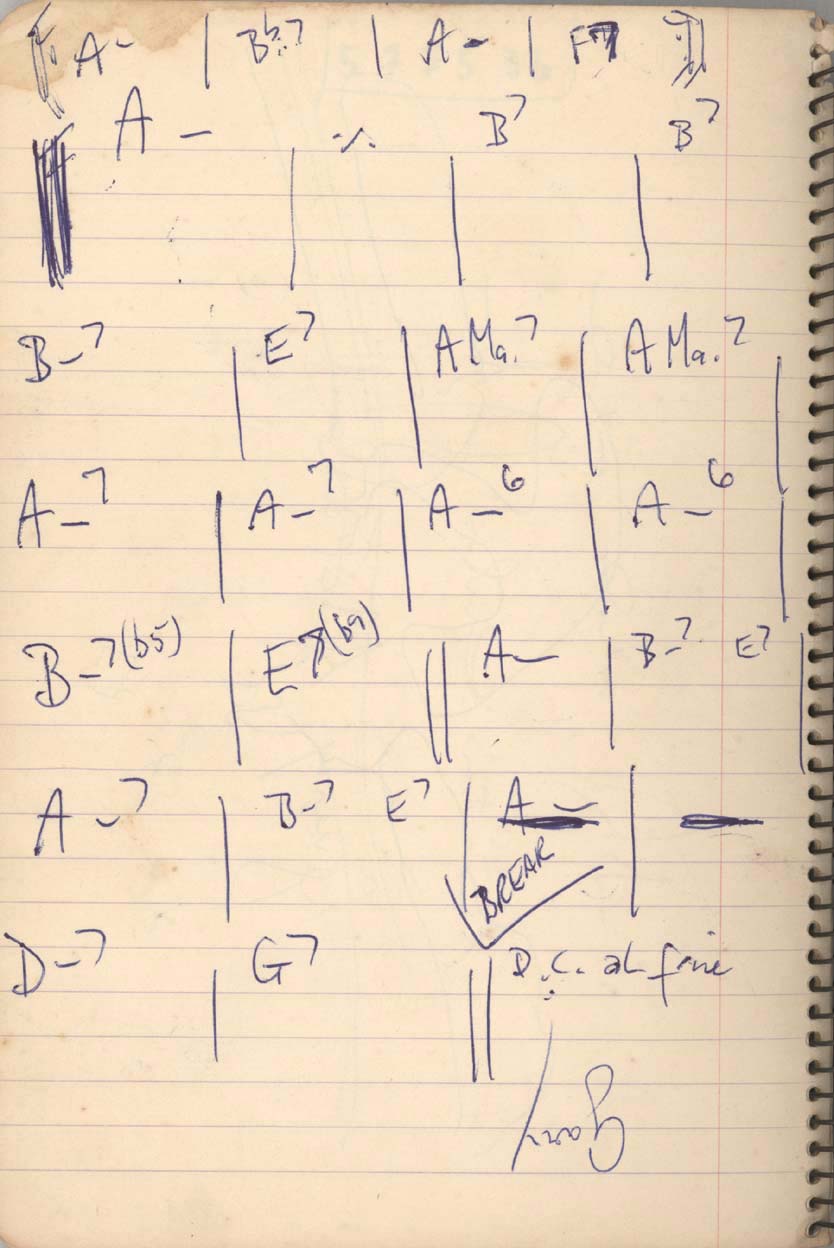 A- | Bb7 | A- | F7
A - | ⁒ | B7 | B7
B-7 | E7 | A Ma.7 | A Ma.7 |
A-7 | A-7 | A-6 | A-6 |
B-7(b5) | E7(b9) || A- | B-7 E7 |
A-7 | B-7 E7 | A- |
BREAK
D-7 | G7 || D.C. al fine